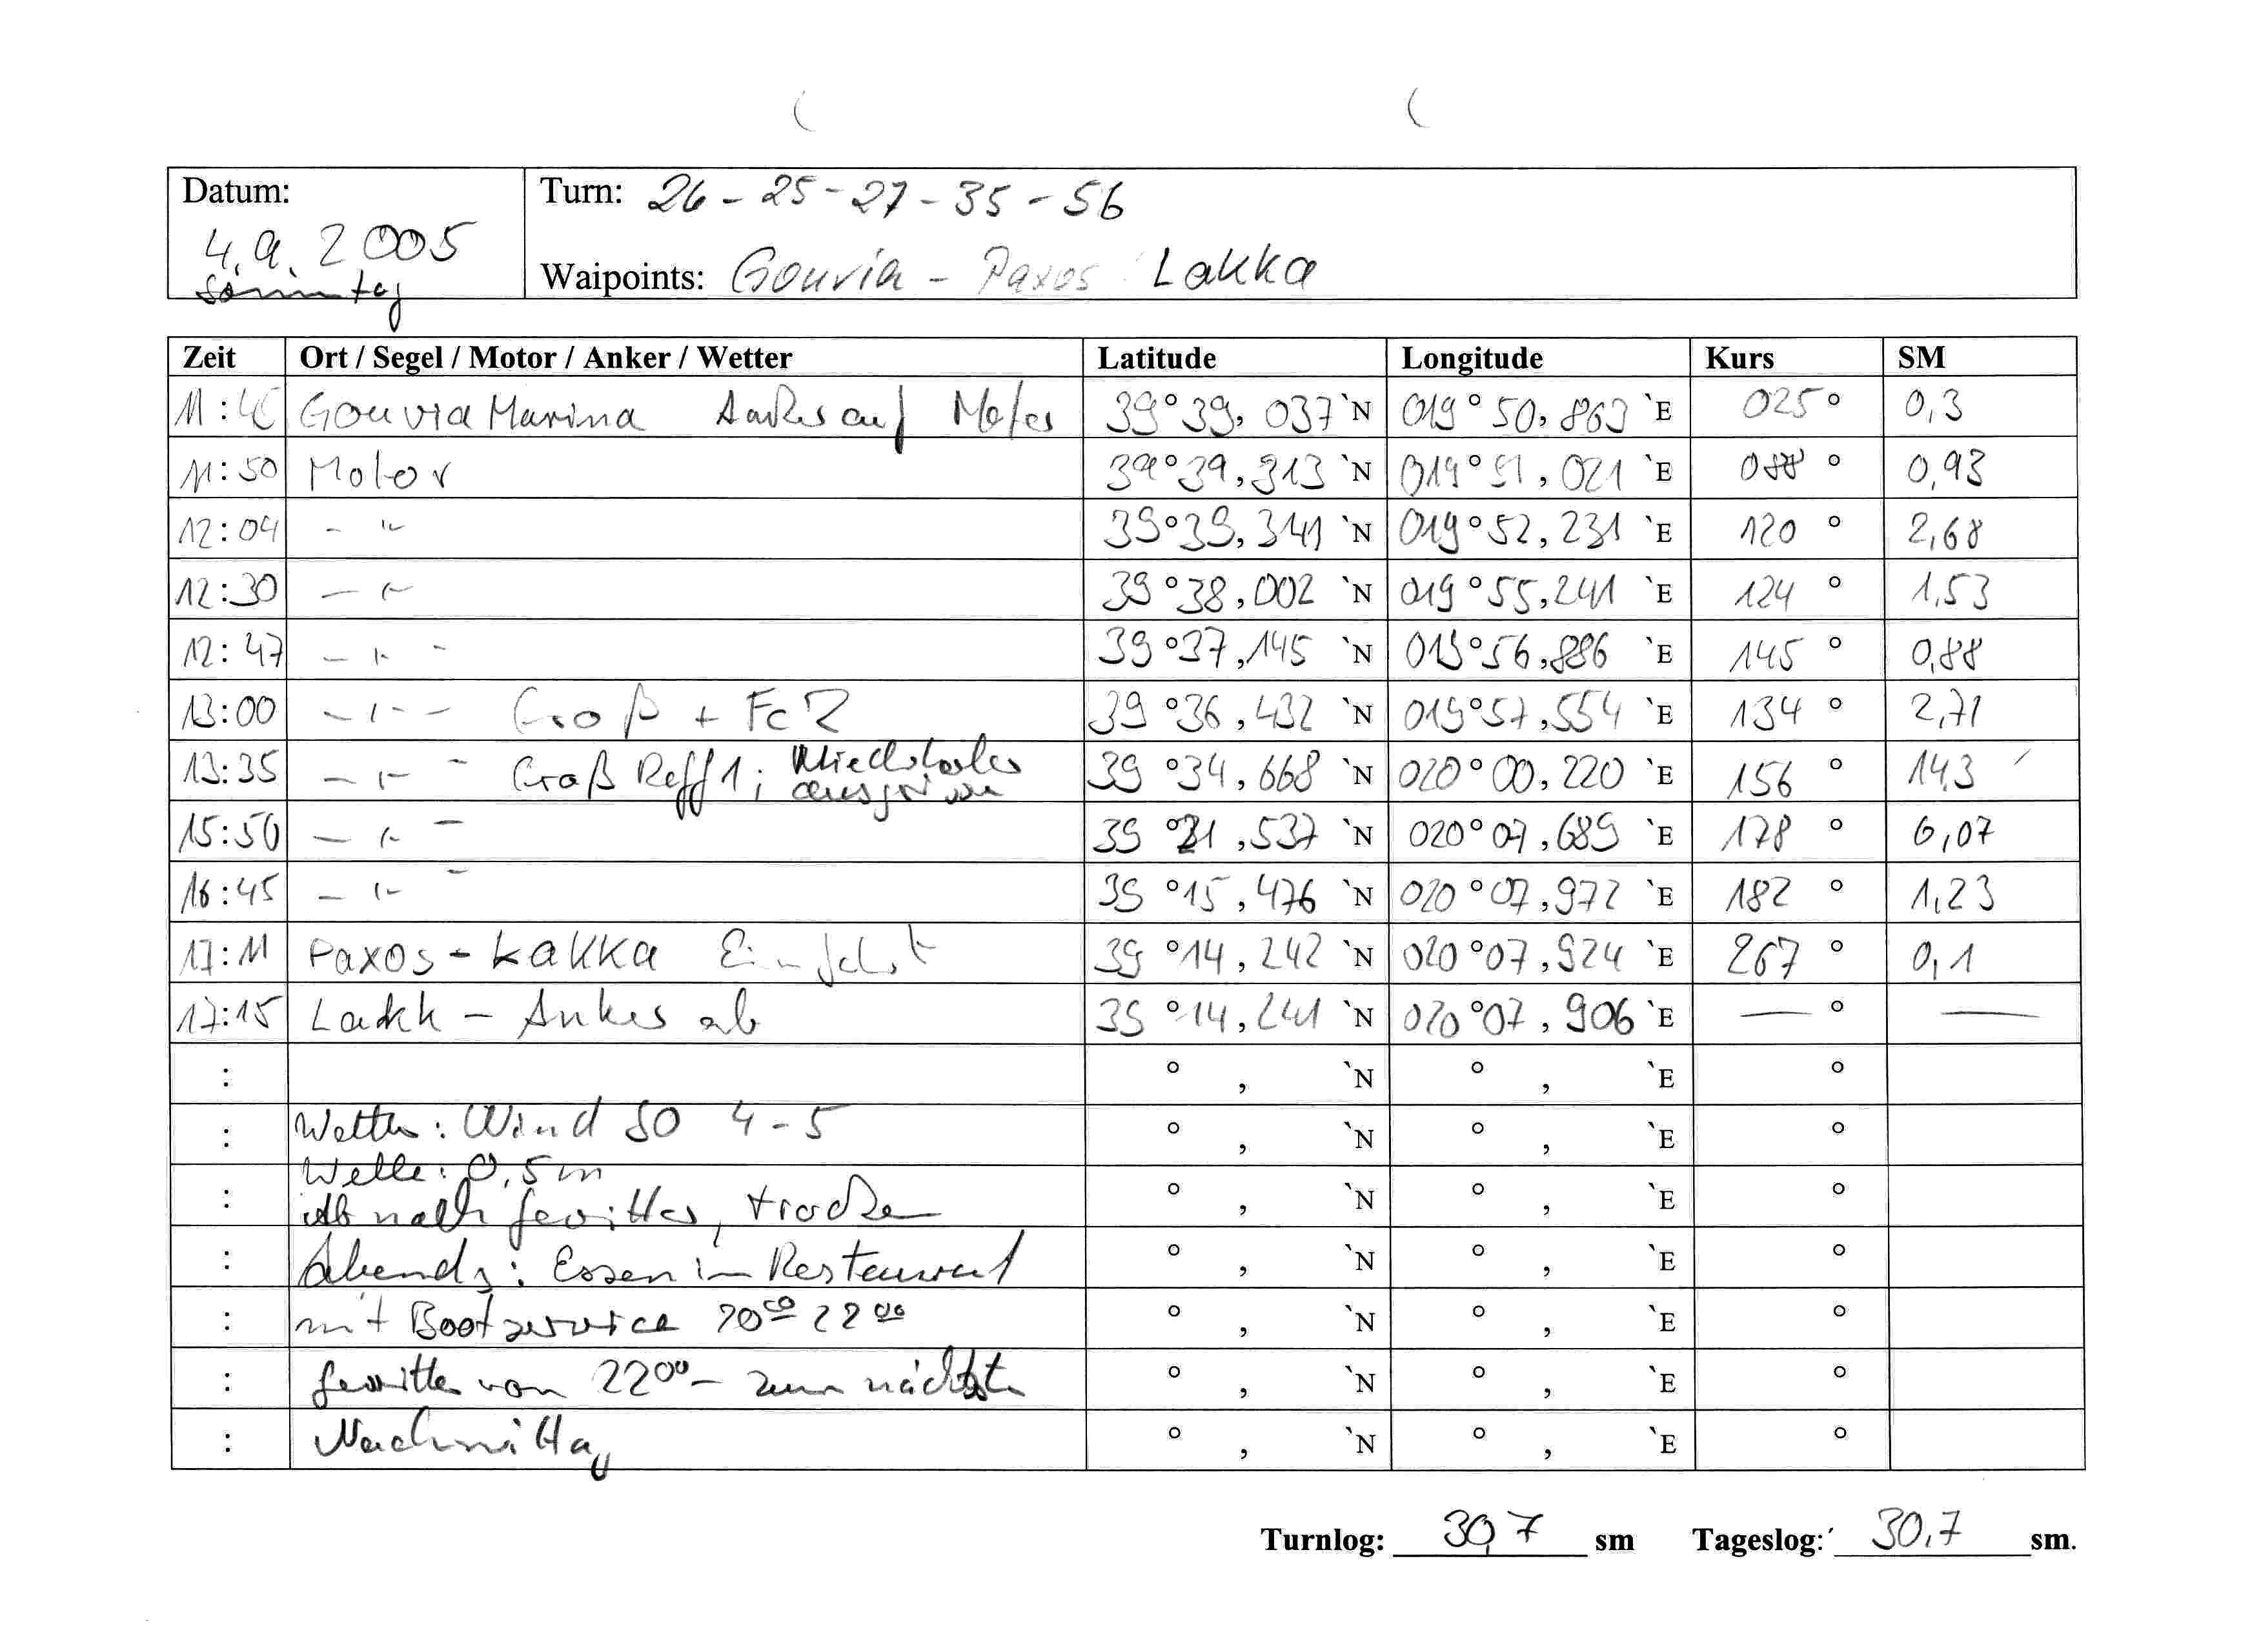 Datum: Turn: 26 - 25 - 27 - 35 - 56
4.9.2005
Sonntag Waipoints: Gouvia - Paxos Lakka
Zeit Ort / Segel / Motor / Anker / Wetter Latitude Longitude Kurs SM
11:45 Gouvia Marina Anker auf Motor 39°39,037`N 019°50,863`E 025° 0,3
11:50 Motor 39°39,313`N 019°51,021`E 088° 0,93
12:04 - " - 39°39,341`N 019°52,231`E 120° 2,68
12:30 - " - 39°38,002`N 019°55,241`E 124° 1,53
12:47 - " - 39°37,145`N 019°56,886`E 145° 0,88
13:00 - " - Groß + Fc 39°36,432`N 019°57,554`E 134° 2,71
13:35 - " - Groß Reff 1; 39°34,668`N 020°00,220`E 156° 14,3
15:50 - " - 39°21,537`N 020°07,689`E 178° 6,07
16:45 - " - 39°15,476`N 020°07,972`E 182° 1,23
17:11 Paxos - Lakka Einfahrt 39°14,242`N 020°07,924`E 267° 0,1
17:15 Lakk - Anker ab 39°14,241`N 020°07,906`E — ° —
: ° , `N ° , `E °
: Wetter: Wind SO 4-5 ° , `N ° , `E °
Welle: 0,5m
: nach Gewitter, trocken ° , `N ° , `E °
: Abends: Essen im Restaurant ° , `N ° , `E °
: mit Bootservice 20⁰⁰ 22⁰⁰ ° , `N ° , `E °
: Gewitter von 22⁰⁰ - zum nächsten ° , `N ° , `E °
: Nachmittag ° , `N ° , `E °
Turnlog: 30,7 sm Tageslog: 30,7 sm.